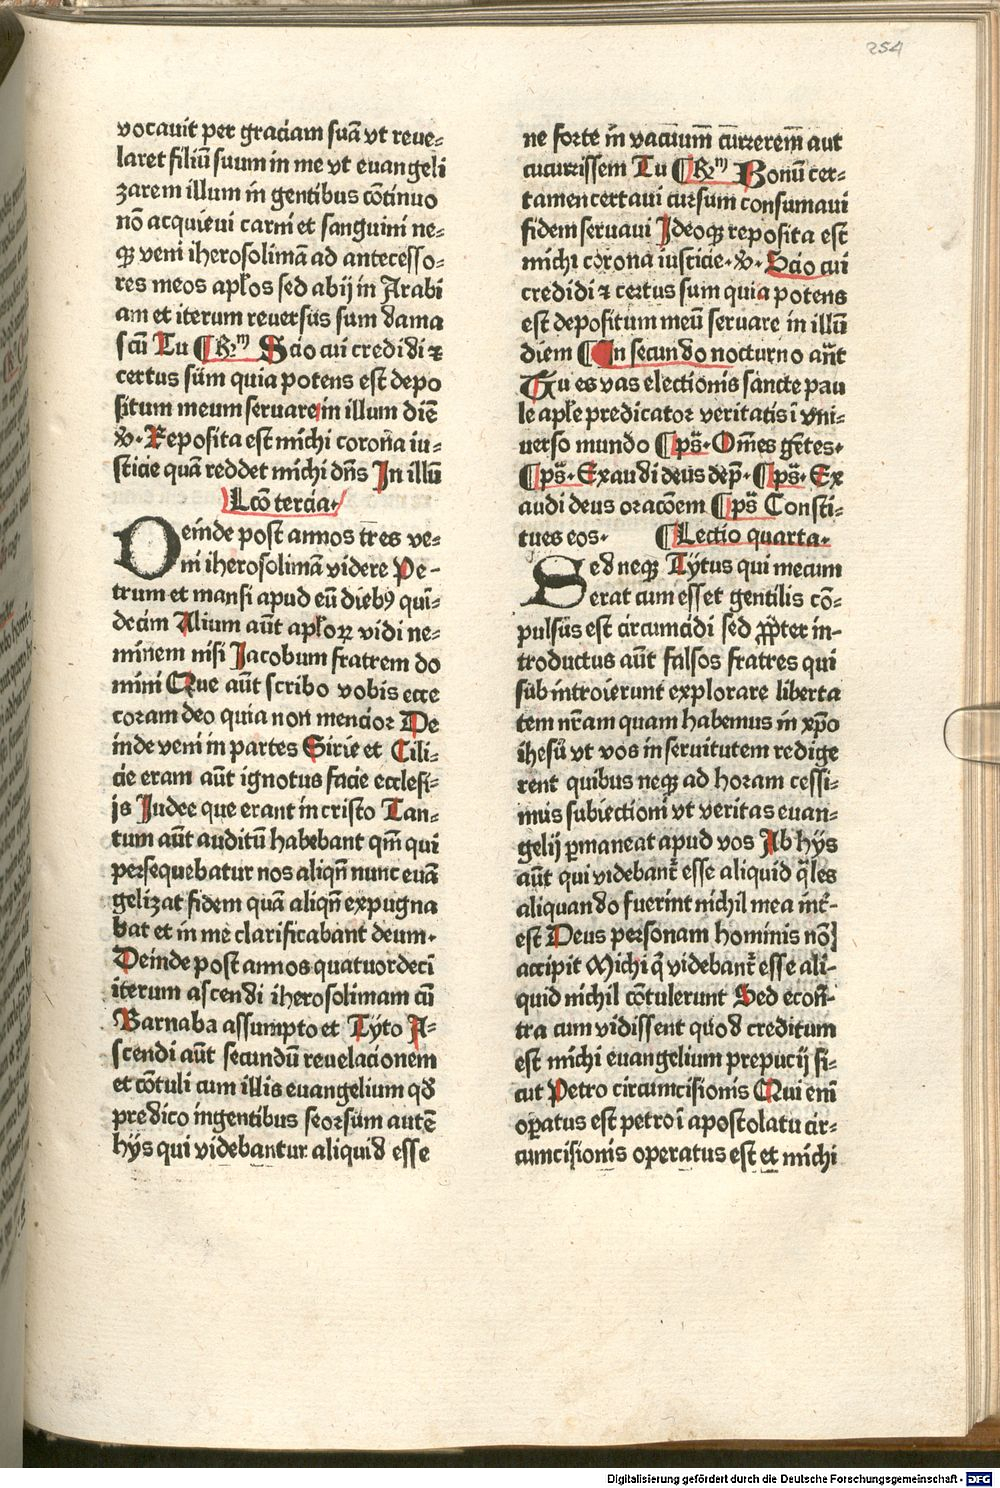 254
vocauit per graciam suā vt reue⸗
laret filiū suum in me vt euangeli
zarem illum in gentibus cōtinuo
nō acquieui carni et sanguini ne⸗
qꝫ veni iherosolimā ad antecesso⸗
res meos apl̄os sed abij in Arabi
am et iterum reuersus sum dama
scū Tu ¶ Rm̄ Scio cui credidi ⁊
certus sum quia potens est depo
situm meum seruare in illum diē
℣. Reposita est michi corona iu⸗
sticie quā reddet michi dn̄s In illū
Lcō tercia.
Deinde post annos tres ve⸗
ni iherosolimā videre Pe-
trum et mansi apud eū diebꝰ qui⸗
decim Alium aūt apl̄oꝝ vidi ne⸗
minem nisi Jacobum fratrem do
mini Que aūt scribo vobis ecce
coram deo quia non mencior De
inde veni in partes Sirie et Cili⸗
cie eram aūt ignotus facie ecclesi⸗
js Judee que erant in cristo Tan⸗
tum aūt auditū habebant qm̄ qui
persequebatur nos aliqn̄ nunc euā
gelizat fidem quā aliqn̄ expugna
bat et in me clarificabant deum.
Deinde post annos quatuordeci
iterum ascendi iherosolimam cū
Barnaba assumpto et Tyto A⸗
scendi aūt secundū reuelacionem
et cōtuli cum illis euangelium qd̄
predico ingentibus seorsum autē
hys qui videbantur aliquid esse
ne forte in vacuum̄ currerem̄ aut
cucurrissem Tu ¶ Rm̄ Bonū cer⸗
tamen certaui cursum consumaui
fidem seruaui Ideoqꝫ reposita est
michi corona iusticie. ℣. Scio cui
credidi ⁊ certus sum quia potens
est depositum meū seruare in illū
diem ¶ In secundo nocturno an̄t
Tu es vas electionis sancte pau
le apl̄e predicator veritatis ī vni⸗
uerso mundo ¶ ps̄. Om̄es gētes.
¶ ps̄. Exaudi deus dep̄. ¶ ps̄. Ex
audi deus oracōem ¶ ps̄ Consti⸗
tues eos. ¶ Lectio quarta.
Sed neqꝫ Tytus qui mecum
erat cum esset gentilis cō⸗
pulsus est circumcidi sed ꝓpter in-
troductus aūt falsos fratres qui
sub introierunt explorare liberta
tem nr̄am quam habemus in xp̄o
ihesu vt vos in seruitutem redige
rent quibus neqꝫ ad horam cessi⸗
mus subiectioni vt veritas euan⸗
gelij ꝑmaneat apud vos Ab hys
aūt qui videbant᷑ esse aliquid q̄les
aliquando fuerint nichil mea int̄⸗
est Deus personam hominis nō]
accipit Michi q̄ videbant᷑ esse ali⸗
quid nichil cōtulerunt Sed econ̄⸗
tra cum vidissent quod creditum
est michi euangelium prepucij si⸗
cut Petro circumcisionis Qui eni
oꝑatus est petro ī apostolatu cir⸗
cumcisionis operatus est et michi
Digitalisierung gefördert durch die Deutsche Forschungsgemeinschaft - DFG